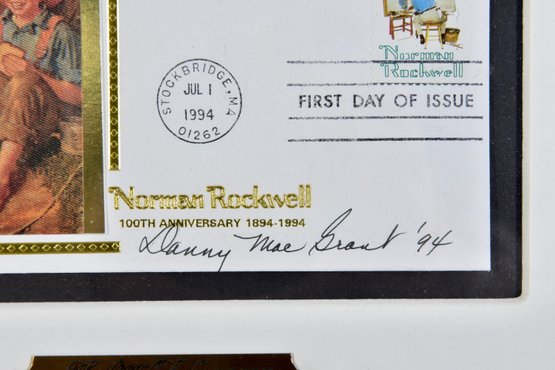 Norman
Rockwell
STOCKBRIDGE, MA
JUL 1
1994
01262
FIRST DAY OF ISSUE
Norman Rockwell
100TH ANNIVERSARY 1894-1994
Danny Mac Grant '94